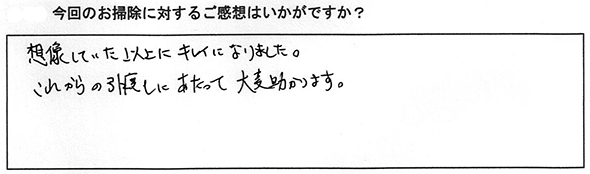 今回のお掃除に対するご感想はいかがですか？
想像していた以上にキレイになりました。
これからの引渡しにあたって大変助かります。